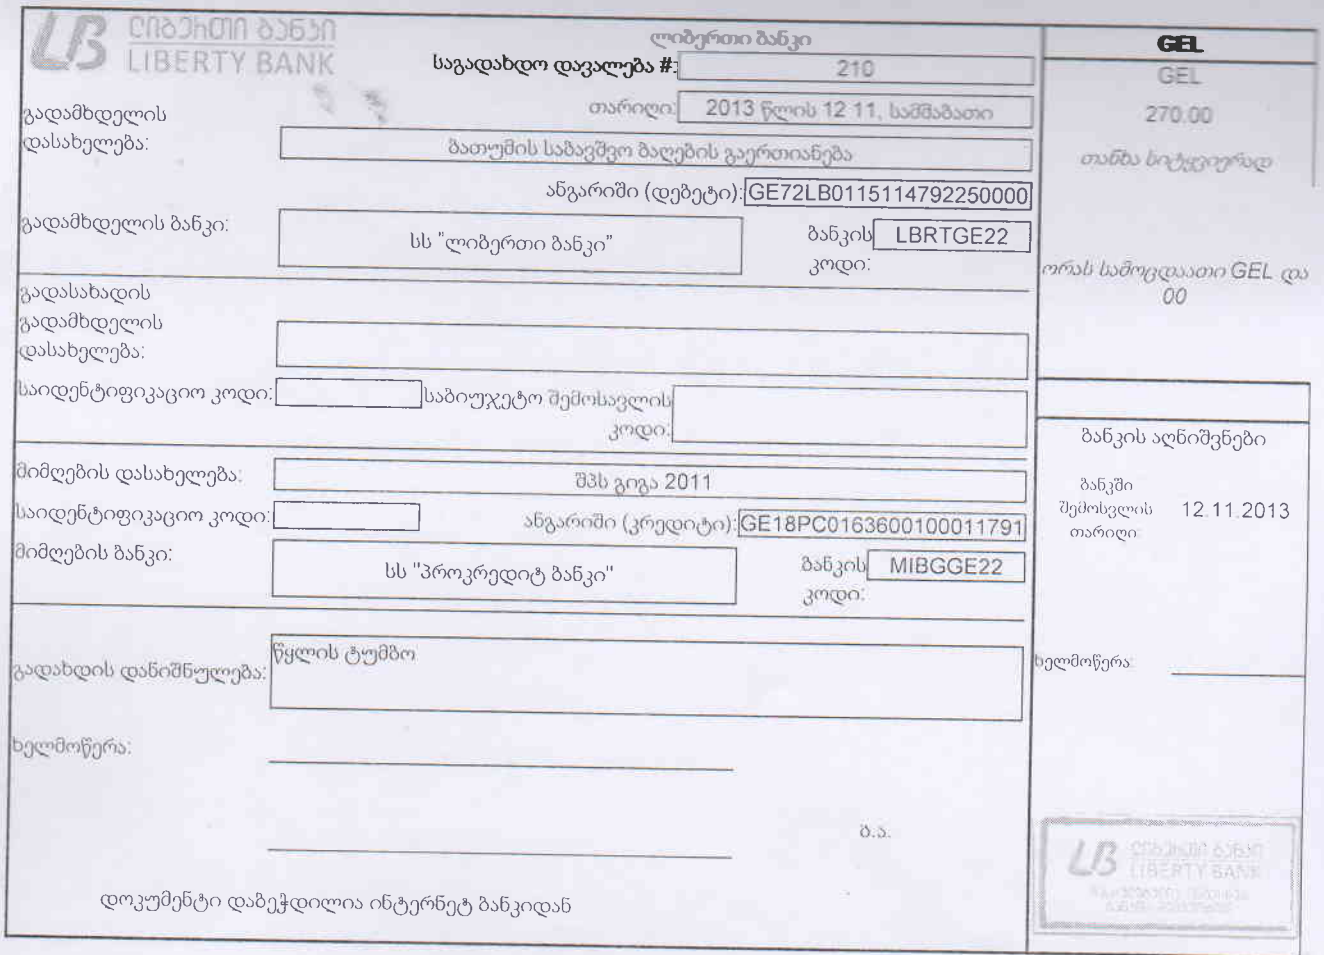 ლიბერთი ბანკი
LIBERTY BANK
ლიბერთი ბანკი
საგადახდო დავალება #: 210
თარიღი: 2013 წლის 12 11, სამშაბათი
გადამხდელის
დასახელება:
ბათუმის საბავშვო ბაღების გაერთიანება
ანგარიში (დებეტი): GE72LB0115114792250000
გადამხდელის ბანკი:
სს "ლიბერთი ბანკი"
ბანკის
კოდი:
LBRTGE22
გადასახადის
გადამხდელის
დასახელება:
საიდენტიფიკაციო კოდი:
საბიუჯეტო შემოსავლის
კოდი:
მიმღების დასახელება:
შპს გიგა 2011
საიდენტიფიკაციო კოდი:
ანგარიში (კრედიტი): GE18PC0163600100011791
მიმღების ბანკი:
სს "პროკრედიტ ბანკი"
ბანკის
კოდი:
MIBGGE22
გადახდის დანიშნულება:
წყლის ტუმბო
ხელმოწერა:
ბ.ა.
დოკუმენტი დაბეჭდილია ინტერნეტ ბანკიდან
GEL
GEL
270.00
თანხა სიტყვიერად
ორას სამოცდაათი GEL და
00
ბანკის აღნიშვნები
ბანკში
შემოსვლის
თარიღი:
12.11.2013
ხელმოწერა:
LB ლიბერთი ბანკი
LIBERTY BANK